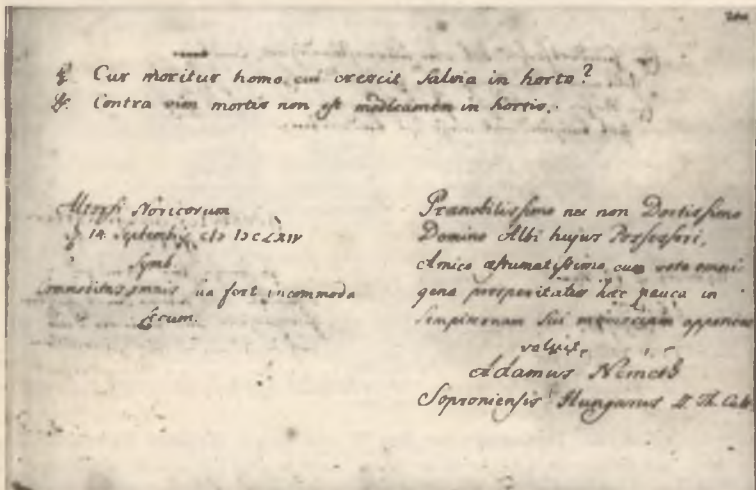 Cur moritur homo, cui crescit Salvia in horto?
Contra vim mortis non est medicamen in hortis.
Altorfi Noricorum
14. Septembris
Symb.
Commoditas omnis sua fert incommoda
secum.
Prænobilissimo nec non Doctissimo
Domino Albi hujus Possessori,
Amico æstumatissimo, cum voto omni
genæ prosperitatis hæc pauca in
sempiternam sui memoriam apponere
voluit,
Adamus Németh
Soproniensis Hungarus